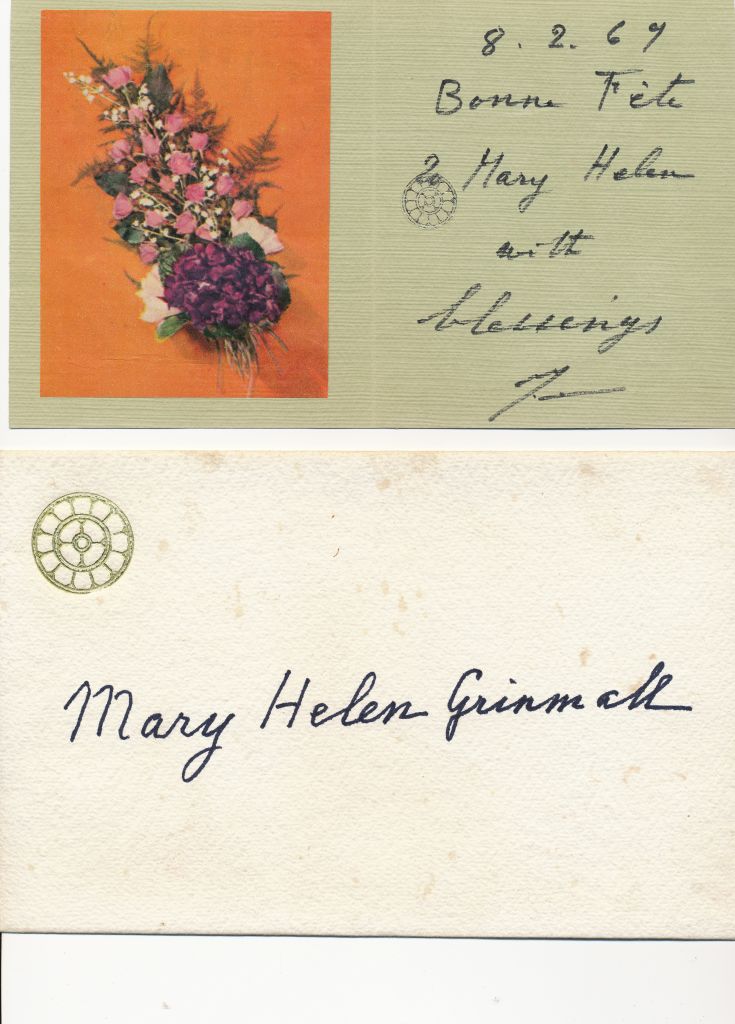 8.2.69
Bonne Fête
à Mary Helen
with
blessings
Mary Helen Grinmall